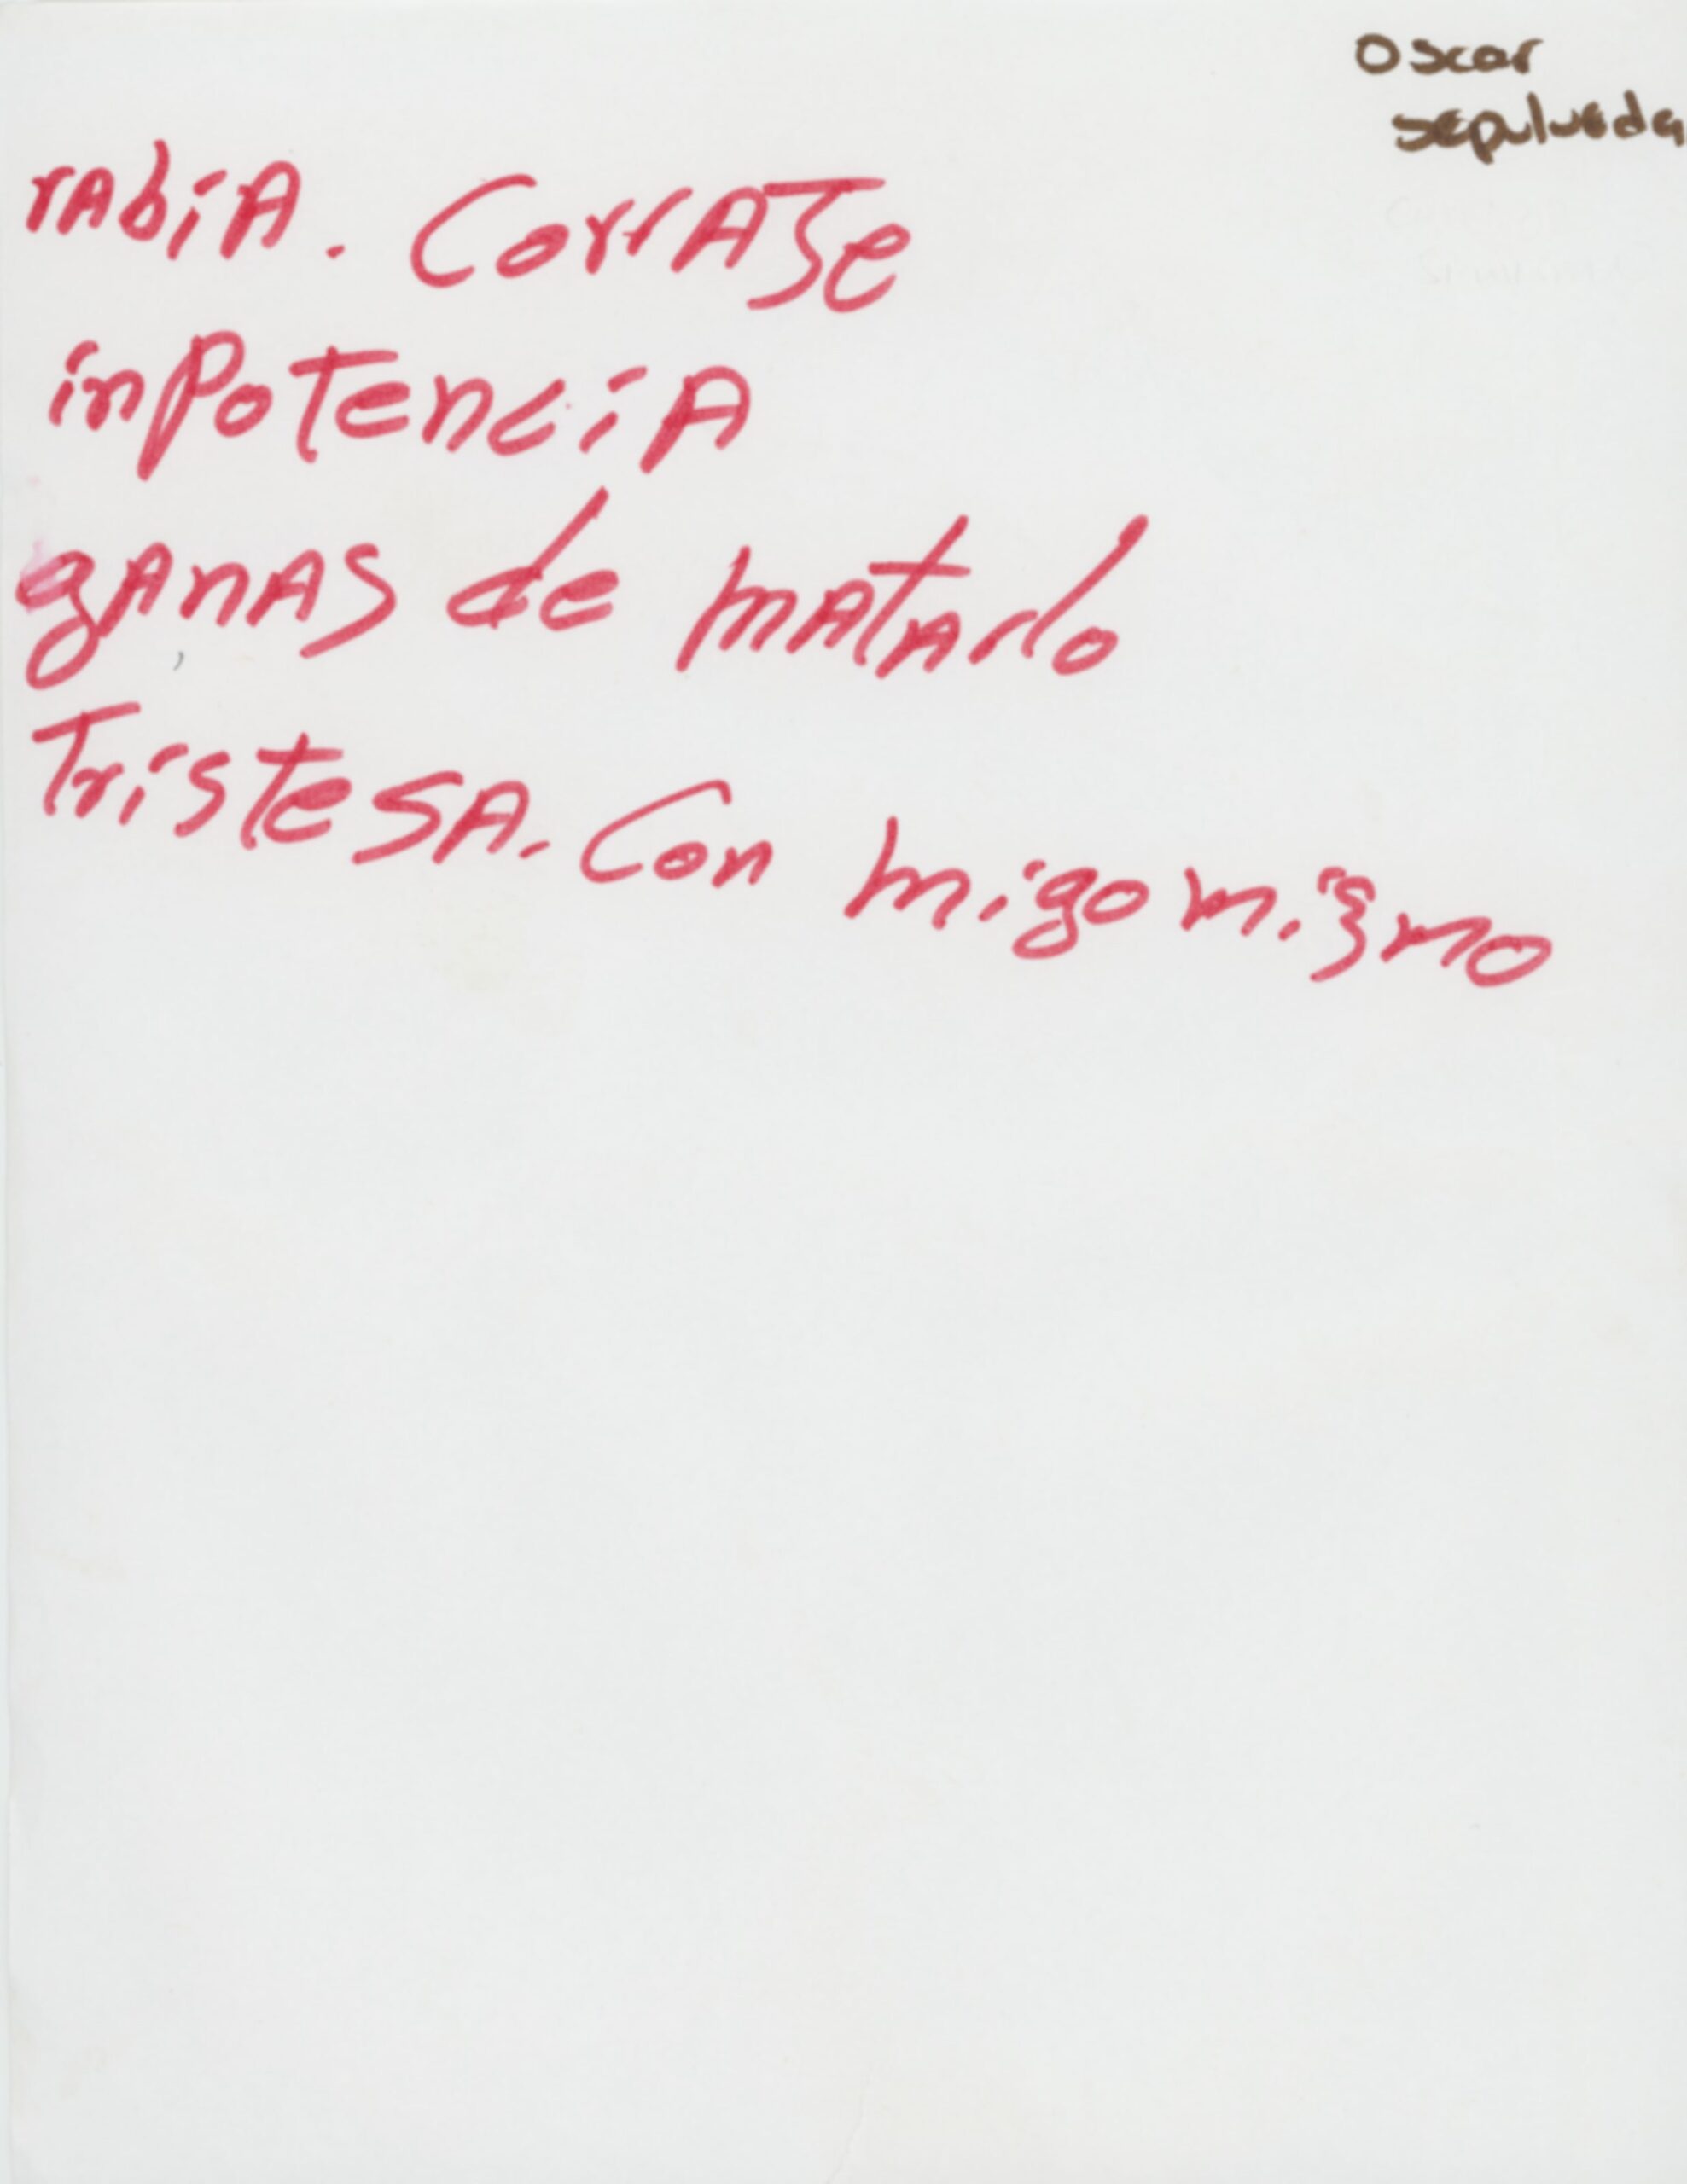 Oscar
sepulveda
rAbiA. CorrAJe
inPotenciA
gAnAS de mAtArlo
TristeSA. Con migo mismo